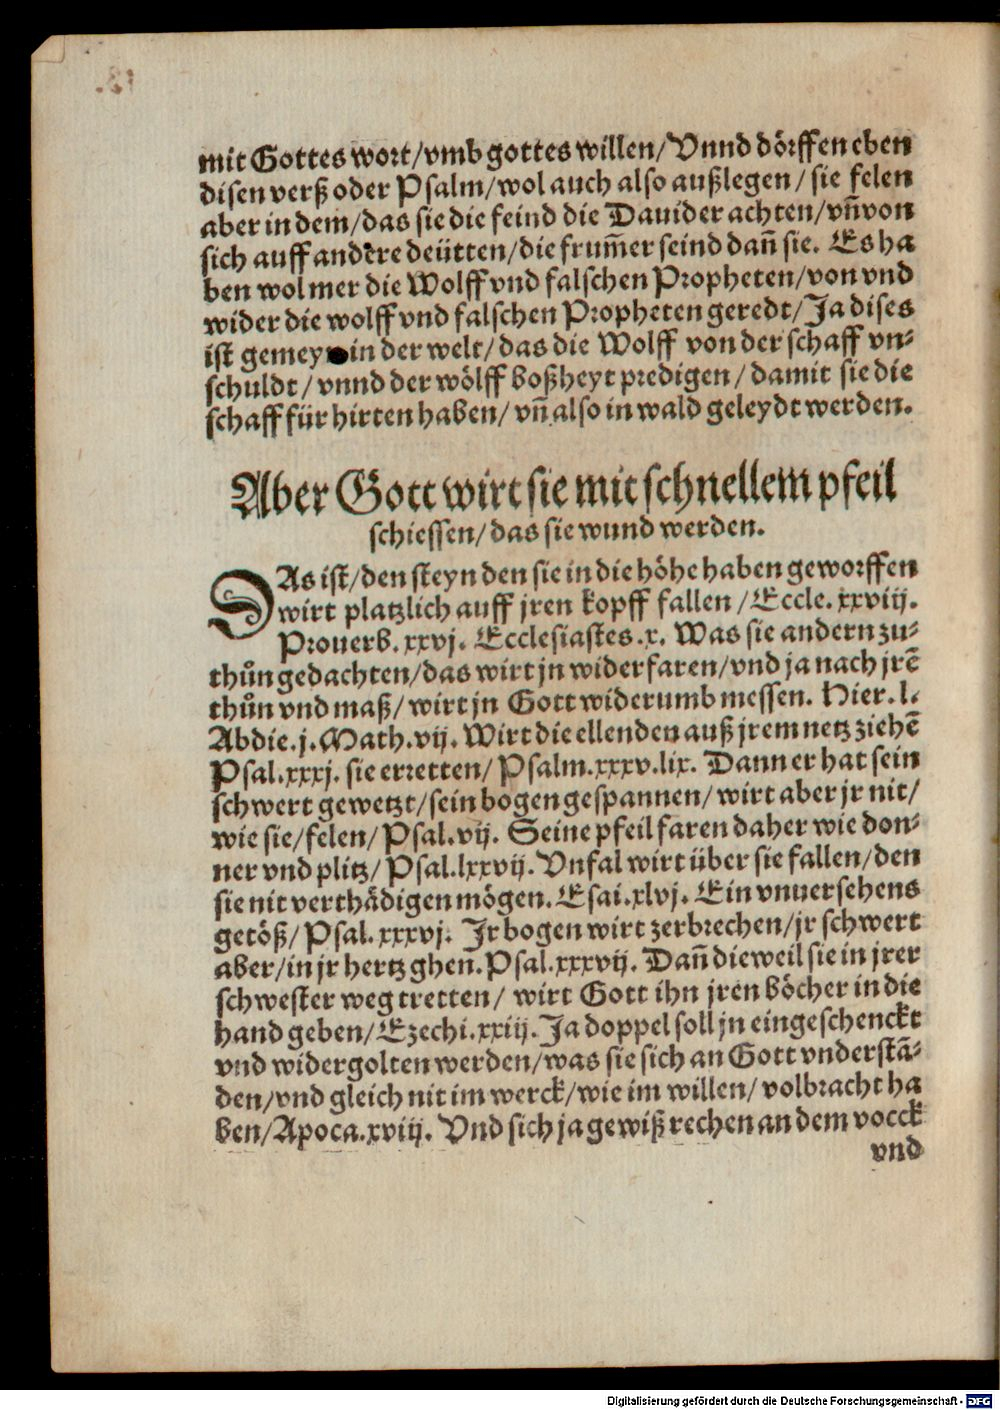 mit Gottes wort/vmb gottes willen/Vnnd dörffen eben
disen verß oder Psalm/wol auch also außlegen/sie felen
aber in dem/das sie die feind die Dauider achten/vñ von
sich auff andere deütten/die frum̃er seind dañ sie. Es ha
ben wol mer die Wolff vnd falschen Propheten/von vnd
wider die wolff vnd falschen Propheten geredt/Ja dises
ist gemeyn in der welt/das die Wolff von der schaff vn-
schuldt/vnnd der wölff boßheyt predigen/damit sie die
schaff für hirten haben/vñ also in wald geleydt werden.
Aber Gott wirt sie mit schnellem pfeil
schiessen/das sie wund werden.
DAs ist/den steyn den sie in die höhe haben geworffen
wirt platzlich auff jren kopff fallen/Eccle.xxviij.
Prouerb.xxvj. Ecclesiastes.x. Was sie andern zu-
thůn gedachten/das wirt jn widerfaren/vnd ja nach jrẽ
thůn vnd maß/wirt jn Gott widerumb messen. Hier.l.
Abdie.j.Math.vij. Wirt die ellenden auß jrem netz ziehẽ
Psal.xxxj. sie erretten/Psalm.xxxv.lix. Dann er hat sein
schwert gewetzt/sein bogen gespannen/wirt aber jr nit/
wie sie/felen/Psal.vij. Seine pfeil faren daher wie don-
ner vnd plitz/Psal.lxxvij. Vnfal wirt über sie fallen/den
sie nit verthädigen mögen. Esai.xlvj. Ein vnuersehens
getöß/Psal.xxxvj. Jr bogen wirt zerbrechen/jr schwert
aber/in jr hertz ghen. Psal.xxxvij. Dañ dieweil sie in jrer
schwester weg tretten/wirt Gott ihn jren böcher in die
hand geben/Ezechi.xxiij. Ja doppel soll jn eingeschenckt
vnd widergolten werden/was sie sich an Gott vnderstã-
den/vnd gleich nit im werck/wie im willen/volbracht ha
ben/Apoca.xviij. Vnd sich ja gewiß rechen an dem vocck
vnd
Digitalisierung gefördert durch die Deutsche Forschungsgemeinschaft - DFG